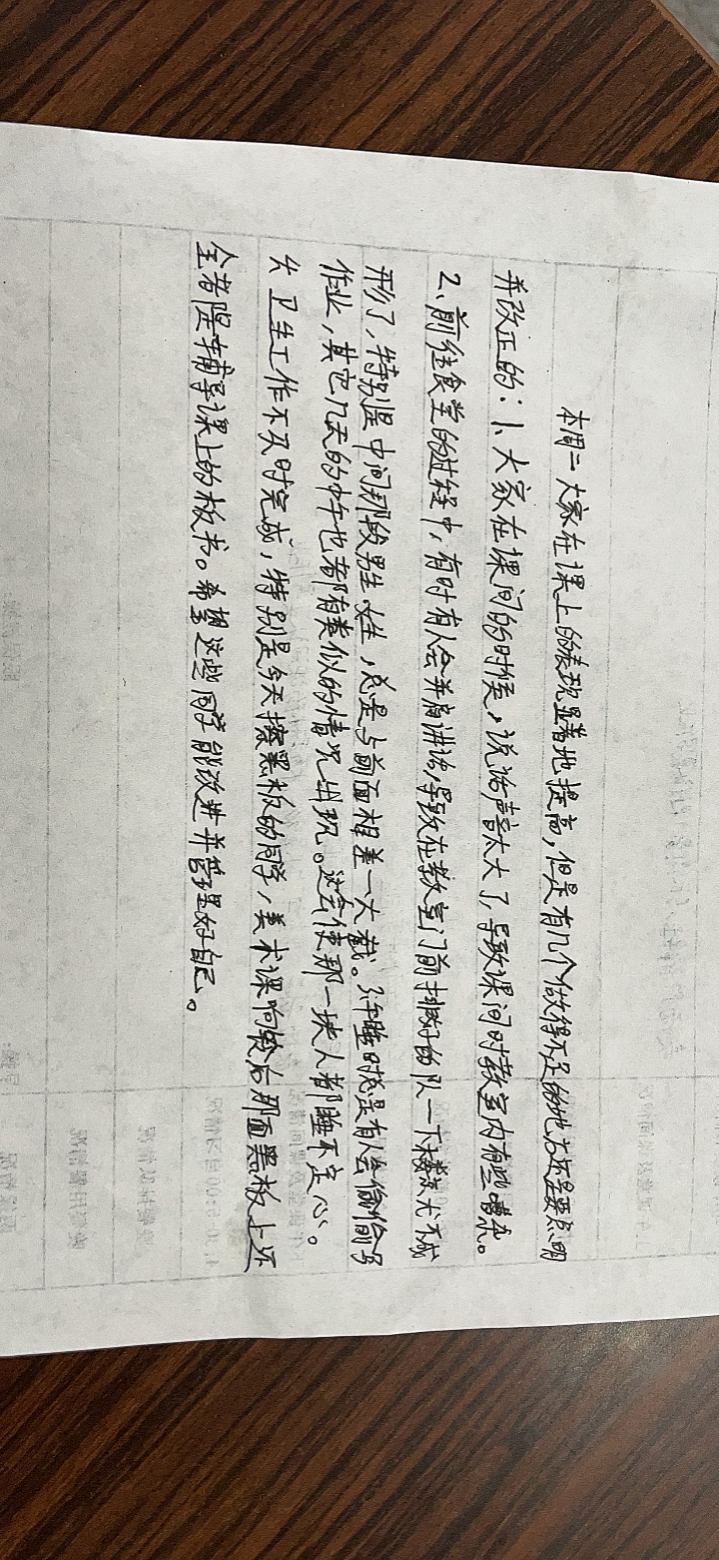 本周二大家在课上的表现显著地提高,但是有几个做得不足的地方还是要点明
并改正的:1、大家在课间的时候,说话声音太大了,导致课间时教室内有些嘈杂。
2、前往食堂的过程中,有时有人会并肩讲话,导致在教室门前排好的队一下楼就不成
形了,特别是中间那段男生女生,总是与前面相差一大截。3、午睡时总是有人会偷偷写
作业,其它几天的中午也都有类似的情况出现。这会使那一块人都睡不定心。
4、卫生工作不及时完成,特别是今天擦黑板的同学,美术课响铃后那面黑板上还
全都是辅导课上的板书。希望这些同学能改进并管理好自己。